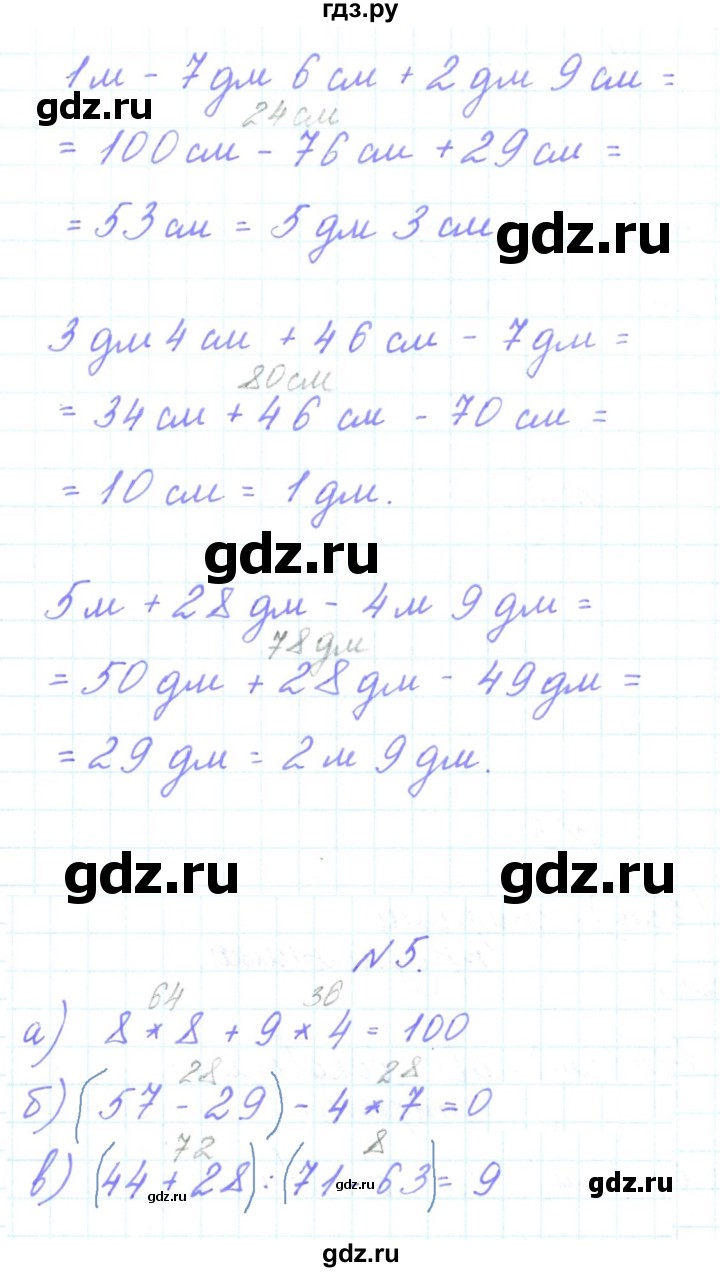 гдз.ру
1м - 7дм 6см + 2дм 9см =
gdz.ru
24см
= 100см - 76см + 29см =
= 53см = 5дм 3см
gdz.ru
3дм 4см + 46см - 7дм =
80см
= 34см + 46см - 70см =
= 10см = 1дм.
gdz.ru
5м + 28дм - 4м 9дм =
78дм
= 50дм + 28дм - 49дм =
= 29дм = 2м 9дм.
gdz.ru gdz.ru
N5.
64 36
а) 8 * 8 + 9 * 4 = 100
28 28
б) (57 - 29) - 4 * 7 = 0
72 8
в) (44 + 28) : (71 63) = 9
gdz.ru gdz.ru gdz.ru
gdz.ru